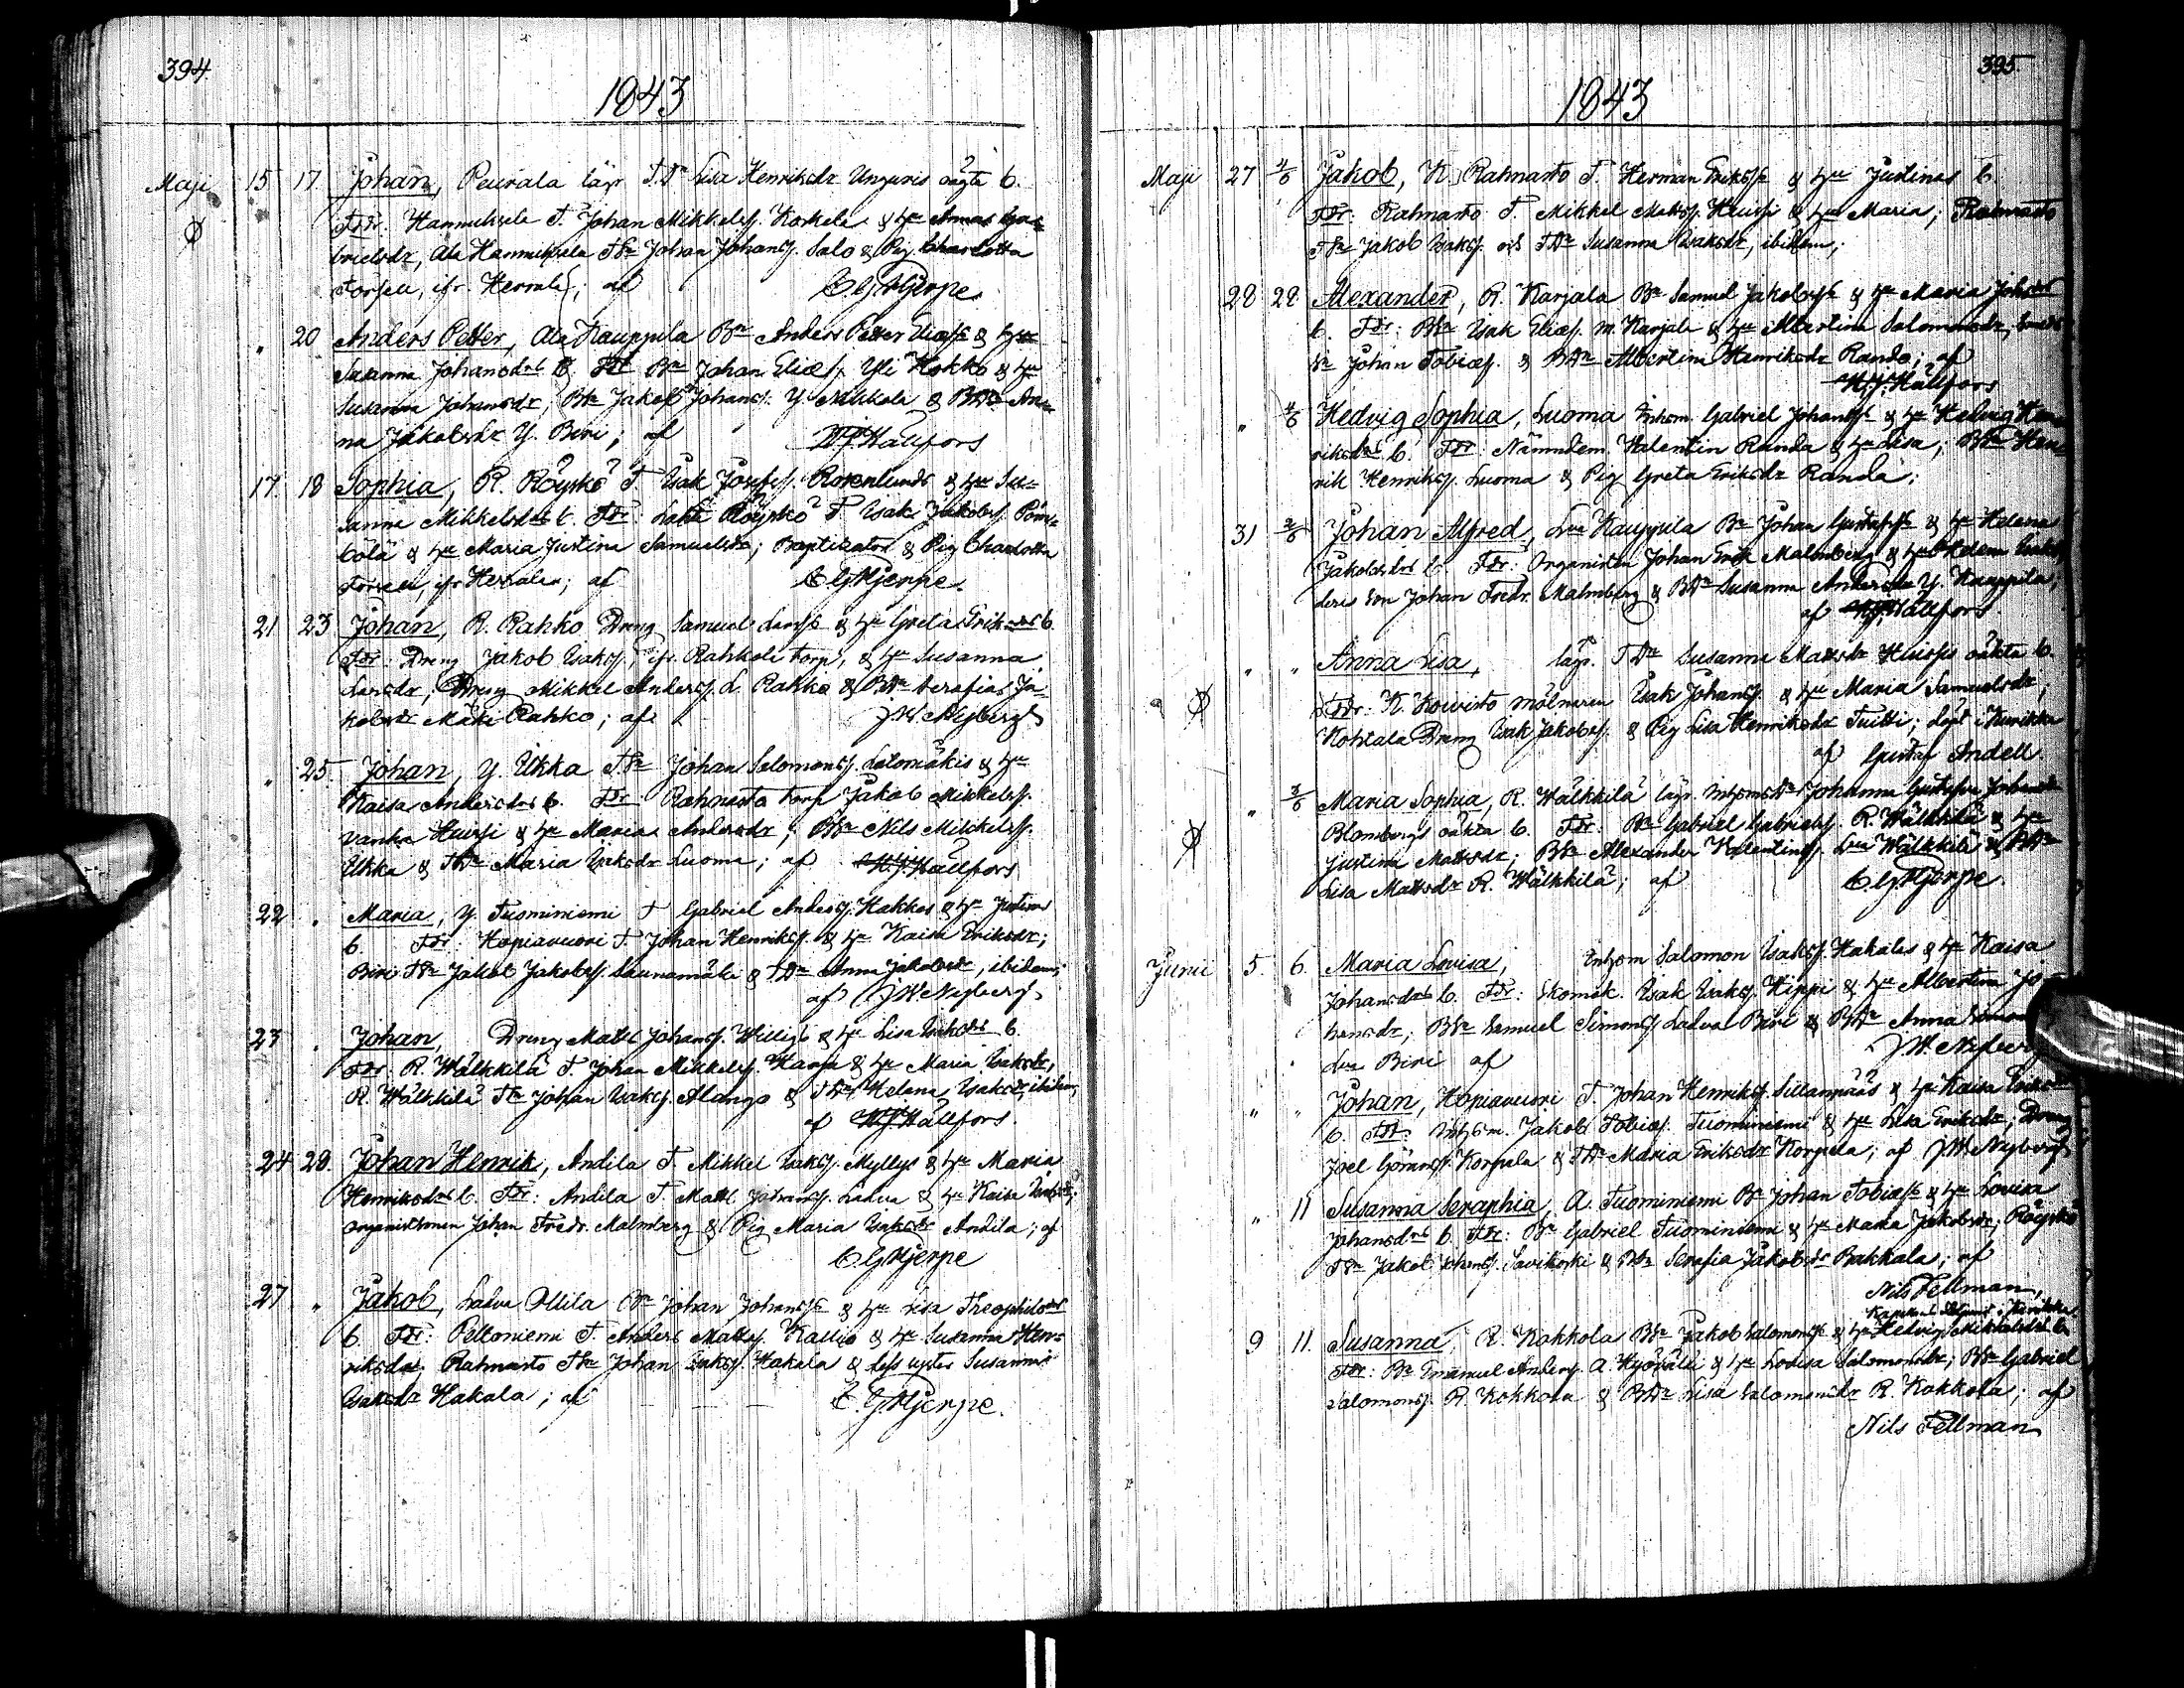 394.
1843
Maji 15 17 Johan, Peurala lägr T.Dr Lisa Henriksdr Unguris oägta b.
Fdr: Hannuksela T. Johan Mikkelss. Korkela & Hu Annas Ga-
brielsdr, Ala Hannuksela TSn Johan Johanss. Salo & Pig. Charlotta
Forsell, ifr. Herrala; af C G Hjerpe.
" 20 Anders Petter, Ala Kauppila Bn Anders Petter Eliæss & Hu
Susanna Johansdrs b. Fdr Bn Johan Eliæss. Yli Hokko & Hu
Susanna Johansdr, BSn Jakob Johanss. Y. Mikkola & BDr An-
na Jakobsdr Y. Biri; af W J Hällfors
17 18 Sophia, R. Röyskö T. Isak Josefss. Rosenlunds & Hu Su-
sanna Mikkelsdrs b. Fdr: Röyskö T. Isak Jakobss.
& Hu Maria Justina Samuelsdr; Baptizator & Pig Charlotta
Forsell, ifr Herrala; af C G Hjerpe.
21 23 Johan, R. Rahko Dreng Samuel Larss & Hu Greta Eriksdrs b.
Fdr: Dreng Jakob Isakss, ifr. Rahkola torp, & Hu Susanna
Larsdr; Dreng Mikkel Anderss. L. Rahko & BDr Serafia Ja-
kobsdr Mäki Rahko; af J W Nyberg
" 25. Johan, Y. Ukka T.Sn Johan Salomonss. Latomäkis & Hu
Kaisa Andersdrs b. Fdr: Rahnasto torp Jakob Mikkelss.
Vanha Huissi & Hu Maria Andersdr; BSn Nils Mikkelss.
Ukka & TDr Maria Isaksdr Luoma; af W.J. Hällfors
22 " Maria, Y. Tuominiemi T Gabriel Anderss. Hakkos & Hu Justinas
b. Fdr: Hopiavuori T. Johan Henrikss. & Hu Kaisa Eriksdr;
Biri TSn Jakob Jakobss. Saunamäki & TDr Anna Jakobsdr, ibidem;
af J W Nyberg
23 " Johan, Dreng Matts Johanss. Willigs & Hu Lisa Isaksdrs b.
Fdr: R. Wälkkilä T. Johan Mikkelss. Harja & Hu Maria Isaksdr,
R. Wälkkilä TSn Johan Isakss. Alango & TDr Helena Isaksdr, ibidem;
af W.J. Hällfors.
24 28. Johan Henrik, Andila T. Mikkel Isakss. Myllys & Hu Maria
Henriksdrs b. Fdr: Andila T. Matts Johanss. Ladva & Hu Kaisa Isaksdr;
Organistsonen Johan Fredr. Malmberg & Pig Maria Isaksdr Andila; af
C G Hjerpe
27 " Jakob, Ladva Ollila Bn Johan Johanss & Hu Lisa Theophilsdrs
b. Fdr: Peltoniemi T. Anders Mattss. Kallio & Hu Susanna Hen-
riksdr; Rahnasto TSn Johan Isakss. Hakala & dess syster Susanna
Isaksdr Hakala; af C. G Hjerpe.
395.
1843
Maji 27 4/6 Jakob, K. Rahnasto T. Herman Erikss & Hu Justinas b.
Fdr: Rahnasto T. Mikkel Mattss. Huissi & Hu Maria; Rahnasto
TSn Jakob Isakss. och TDr Susanna Isaksdr, ibidem;
28 28 Alexander, R. Karjala Bn Samuel Jakobss & Hu Maria Johsdrs
b. Fdr: BSn Isak Eliæss. M. Karjala & Hu Albertina Salomonsdr,
Sn Johan Tobiæss. & BDr Albertina Henriksdr Rando; af
W.J. Hällfors
" 4/6 Hedvig Sophia, Luoma Inhom. Gabriel Johanss & Hu Hedvig Hen-
riksdrs b. Fdr: Nämndem. Walentin Randa & Hu Lisa; BSn Hen-
rik Henrikss. Luoma & Pig Greta Eriksdr Randa;
31 2/6 Johan Alfred, Lva Kauppila Bn Johan Gustafss & Hu Helena
Jakobsdrs b. Fdr: Organisten Johan Erik Malmberg & Hu Helena
deras Son Johan Fredr. Malmberg & BDr Susanna Andersdr Y. Kauppila;
af W.J. Hällfors
" " Anna Lisa, lägr. TDr Susanna Mattsdr Huissis oäkta b.
Fdr: K. Koivisto mölnaren Isak Johanss & Hu Maria Samuelsdr;
Kohtala Dreng Isak Jakobss. & Pig Lisa Henriksdr Tuisti; döpt i Kurikka
af Gustaf Andell.
" 3/6 Maria Sophia, R. Wälkkilä lägr. InhomsDr Johanna Gustafva Johansdr
Blombergs oäkta b. Fdr: Bn Gabriel Gabrielss. R. Wälkkilä & Hu
Justina Mattsdr; BSn Alexander Walentinss. Lva Wälkkilä & BDr
Lisa Mattsdr R. Wälkkilä; af C. G Hjerpe.
Junii 5. 6. Maria Lovisa, Inhom Salomon Isakss. Hakalas & Hu Kaisa
Johansdrs b. Fdr: Skomak. Isak Isakss. Hippi & Hu Albertina Jo-
hansdr; BSn Samuel Simonss Ladva Biri & BDr Anna
Lva Biri af J W. Nyberg
" " Johan, Hopiavuori T. Johan Henrikss. Sillanpääs & Hu Kaisa Eriksdrs
b. Fdr: Inhom. Jakob Tobiæss. Tuominiemi & Hu Lisa Eriksdr; Dreng
Joel Göranss. Korpela & TDr Maria Eriksdr Korpela; af J W. Nyberg
" 11 Susanna Seraphia, A. Tuominiemi Bn Johan Tobiæss & Hu Lovisa
Johansdrs b. Fdr: Bn Gabriel Tuominiemi & Hu Maria Jakobsdr; Röyskö
TSn Jakob Johanss. Savikoski & BDr Serafia Jakobsdr Bakkala; af
Nils Fellman,
Kapellans i Kurikka
9 11. Susanna, R. Kokkola BSn Jakob Salomonss & Hu Hedvig Mikkelsdrs b.
Fdr: Bn Emanuel Anderss. A. & Hu Lovisa Salomonsdr; BSn Gabriel
Salomonss. R. Kokkola & BDr Lisa Salomonsdr R. Kokkola; af
Nils Fellman